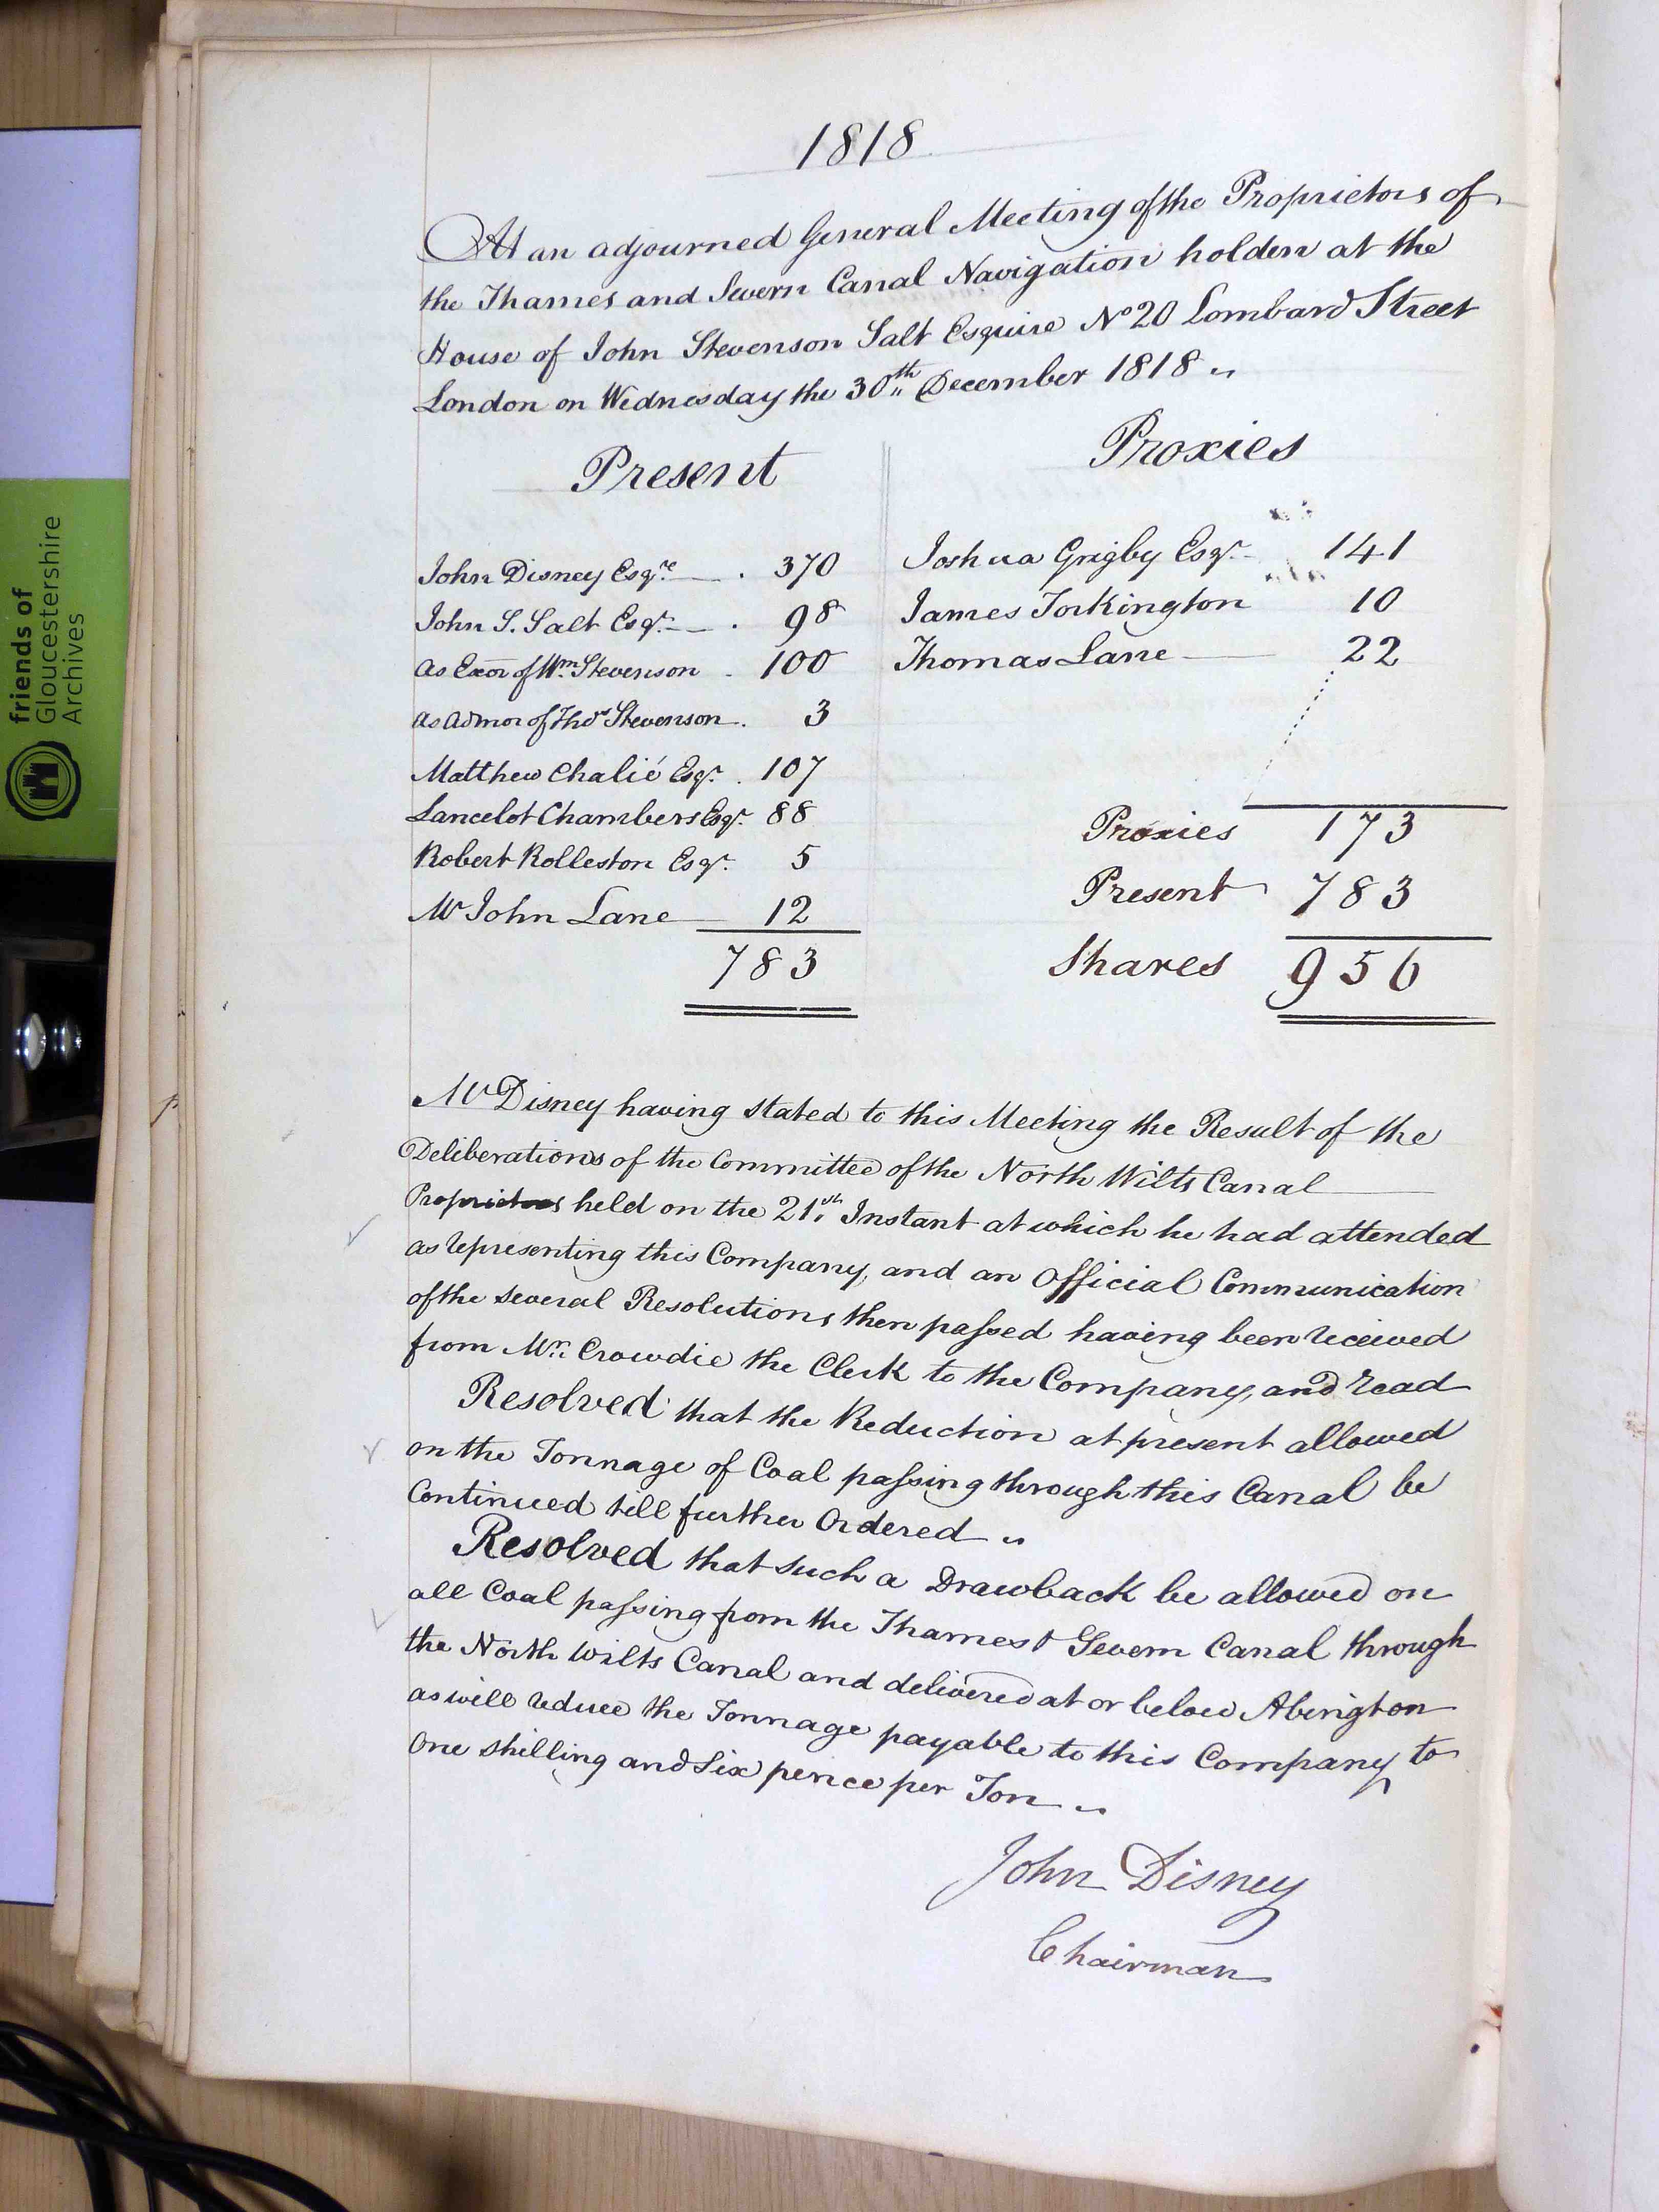 1818
At an adjourned General Meeting of the Proprietors of
the Thames and Severn Canal Navigation holden at the
House of John Stevenson Salt Esquire No 20 Lombard Street
London on Wednesday the 30th December 1818 "
Present
Proxies
John Disney Esqre. 370
John S. Salt Esqr. 98
as Exor of Wm Stevenson 100
as admor of Thos Stevenson 3
Matthew Chalié Esqr. 107
Lancelot Chambers Esqr. 88
Robert Rolleston Esqr. 5
Mr John Lane 12
783
Joshua Grigby Esqr. 141
James Torkington 10
Thomas Lane 22
Proxies 173
Present 783
Shares 956
Mr Disney having stated to this Meeting the Result of the
Deliberations of the Committee of the North Wilts Canal
Proprietors held on the 21st Instant at which he had attended
as representing this Company, and an Official Communication
of the several Resolutions then passed having been received
from Mr. Crowdie the Clerk to the Company, and read
Resolved that the Reduction at present allowed
on the Tonnage of Coal passing through this Canal be
Continued till further Ordered "
Resolved that such a Drawback be allowed on
all Coal passing from the Thames & Severn Canal through
the North Wilts Canal and delivered at or below Abington
as will reduce the Tonnage payable to this Company to
One shilling and Six pence per Ton "
John Disney
Chairman
friends of
Gloucestershire
Archives